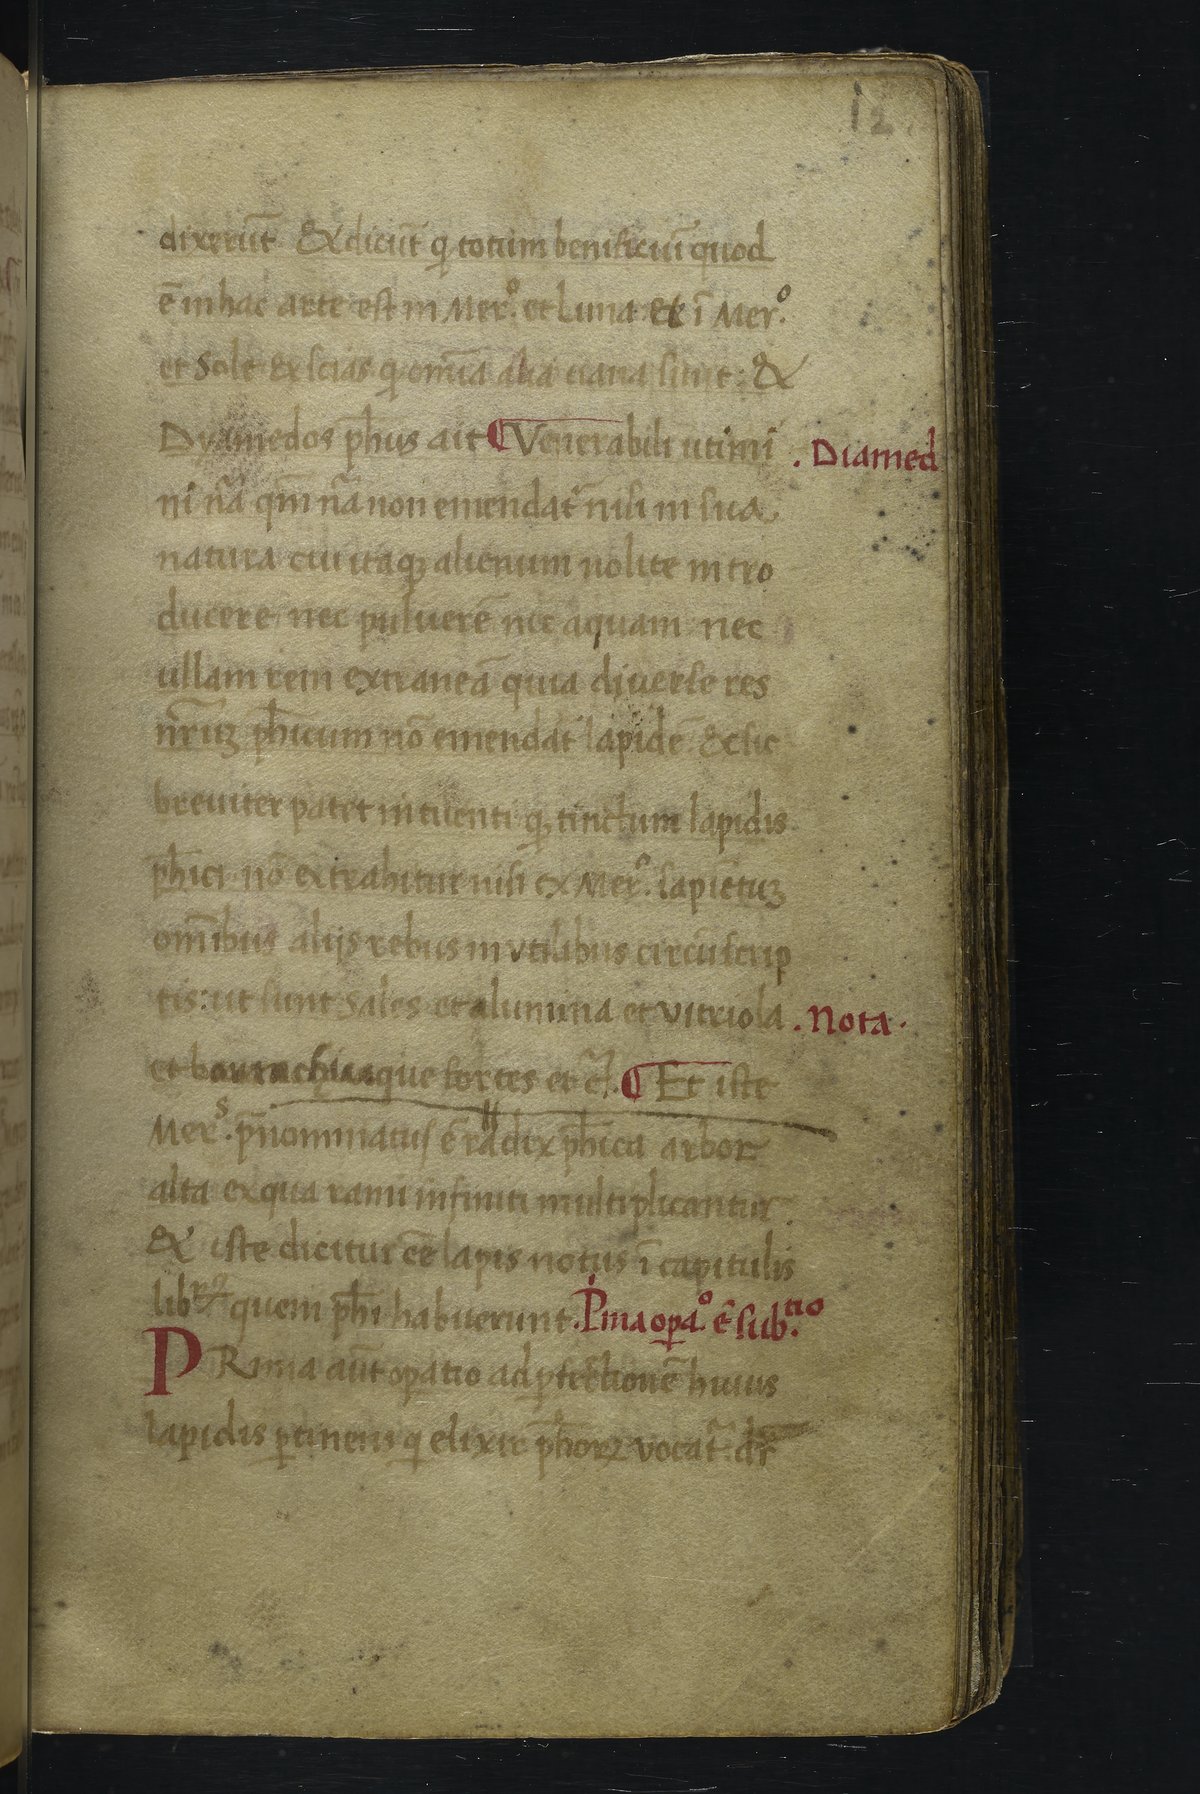 12
dixerūt Et dicūt q totum benificiū quod
ē in hac arte est in Mer.º et luna et ī Mer.º
et Sole et scias q omīa alia uana sunt: Et
Dyamedos ph̄us ait ¶ Venerabili utimī
. Diamed
ni nā qm̄ nā non emendat̄ nisi in sua
natura cui itaq; alienum nolite intro
ducere nec puluerē nec aquam nec
ullam rem extraneā quia diuerse res
nr̄uȝ ph̄icum nō emendāt lapidē. Et sic
breuiter patet intuenti q; tinctum lapidis
ph̄ici nō extrahitur nisi ex Mer.º sapiētuȝ
om̄ibus alijs rebus in vtilibus circūscrip
tis: ut sunt Sales et alumina et vitriola
. Nota.
et aque fortes et c̄. ¶ Et iste
Mer.s p̄nominatus ē radix ph̄ica arbor
alta ex qua rami infiniti multiplicantur
Et iste dicitur eē lapis notus ī capitulis
libꝝ quem ph̄i habuerunt. Pi̇ma opa.º ē sub.tio
PRima aūt opatio ad pfectionē huius
lapidis ptinens q elixir ph̄orꝝ vocat̄. dr̄